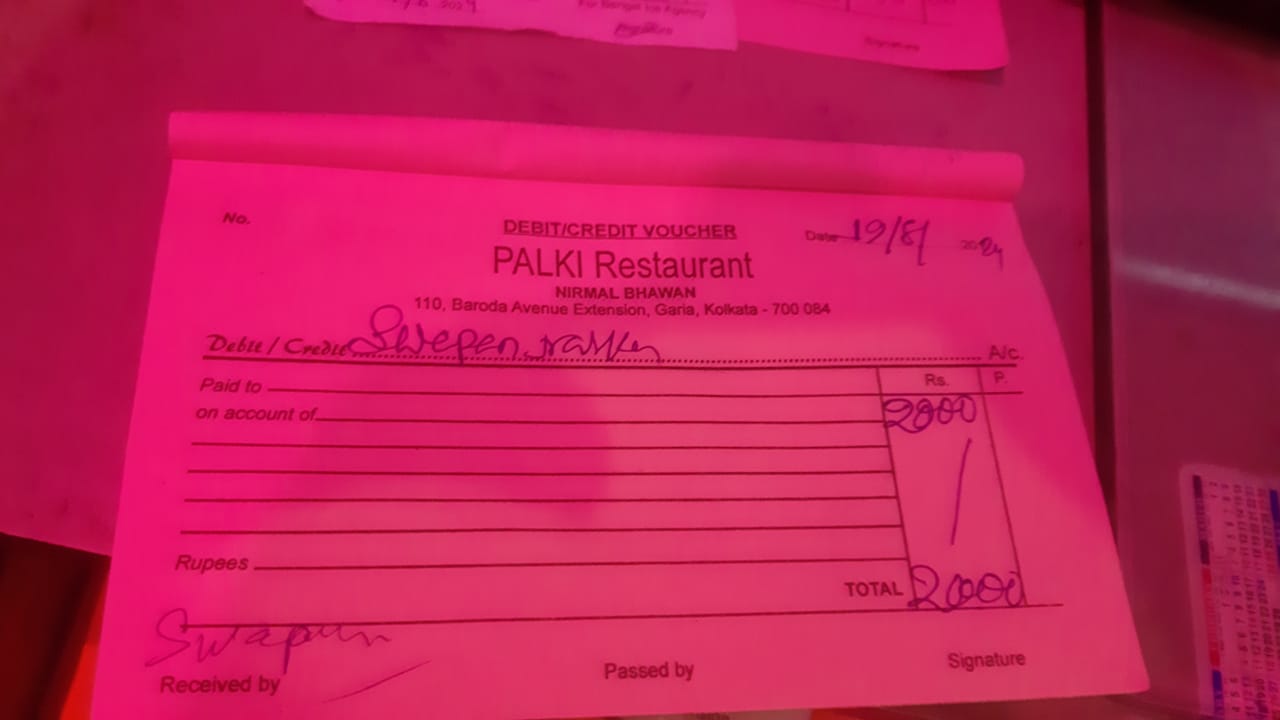 2024
For Bengal Ice Agency
Signature
Signature
No.
DEBIT/CREDIT VOUCHER
Date 19/8/ 2024
PALKI Restaurant
NIRMAL BHAWAN
110, Baroda Avenue Extension, Garia, Kolkata - 700 084
Debit / Credit Swepen A/c.
Paid to Rs. P.
on account of 2000
Rupees
TOTAL 2000
Swapun
Received by Passed by Signature